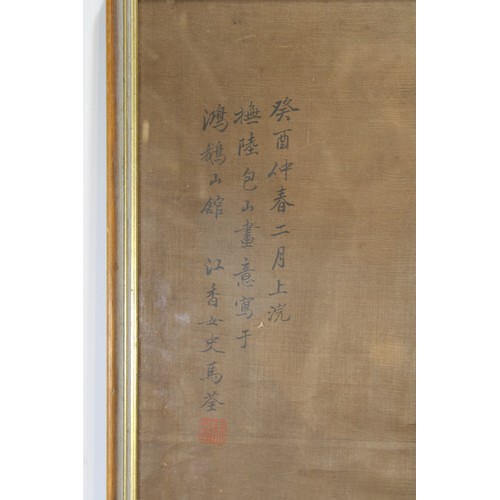 癸酉仲春二月上浣
撫陸包山畫意寫于
鴻鵠山館　江香女史馬荃